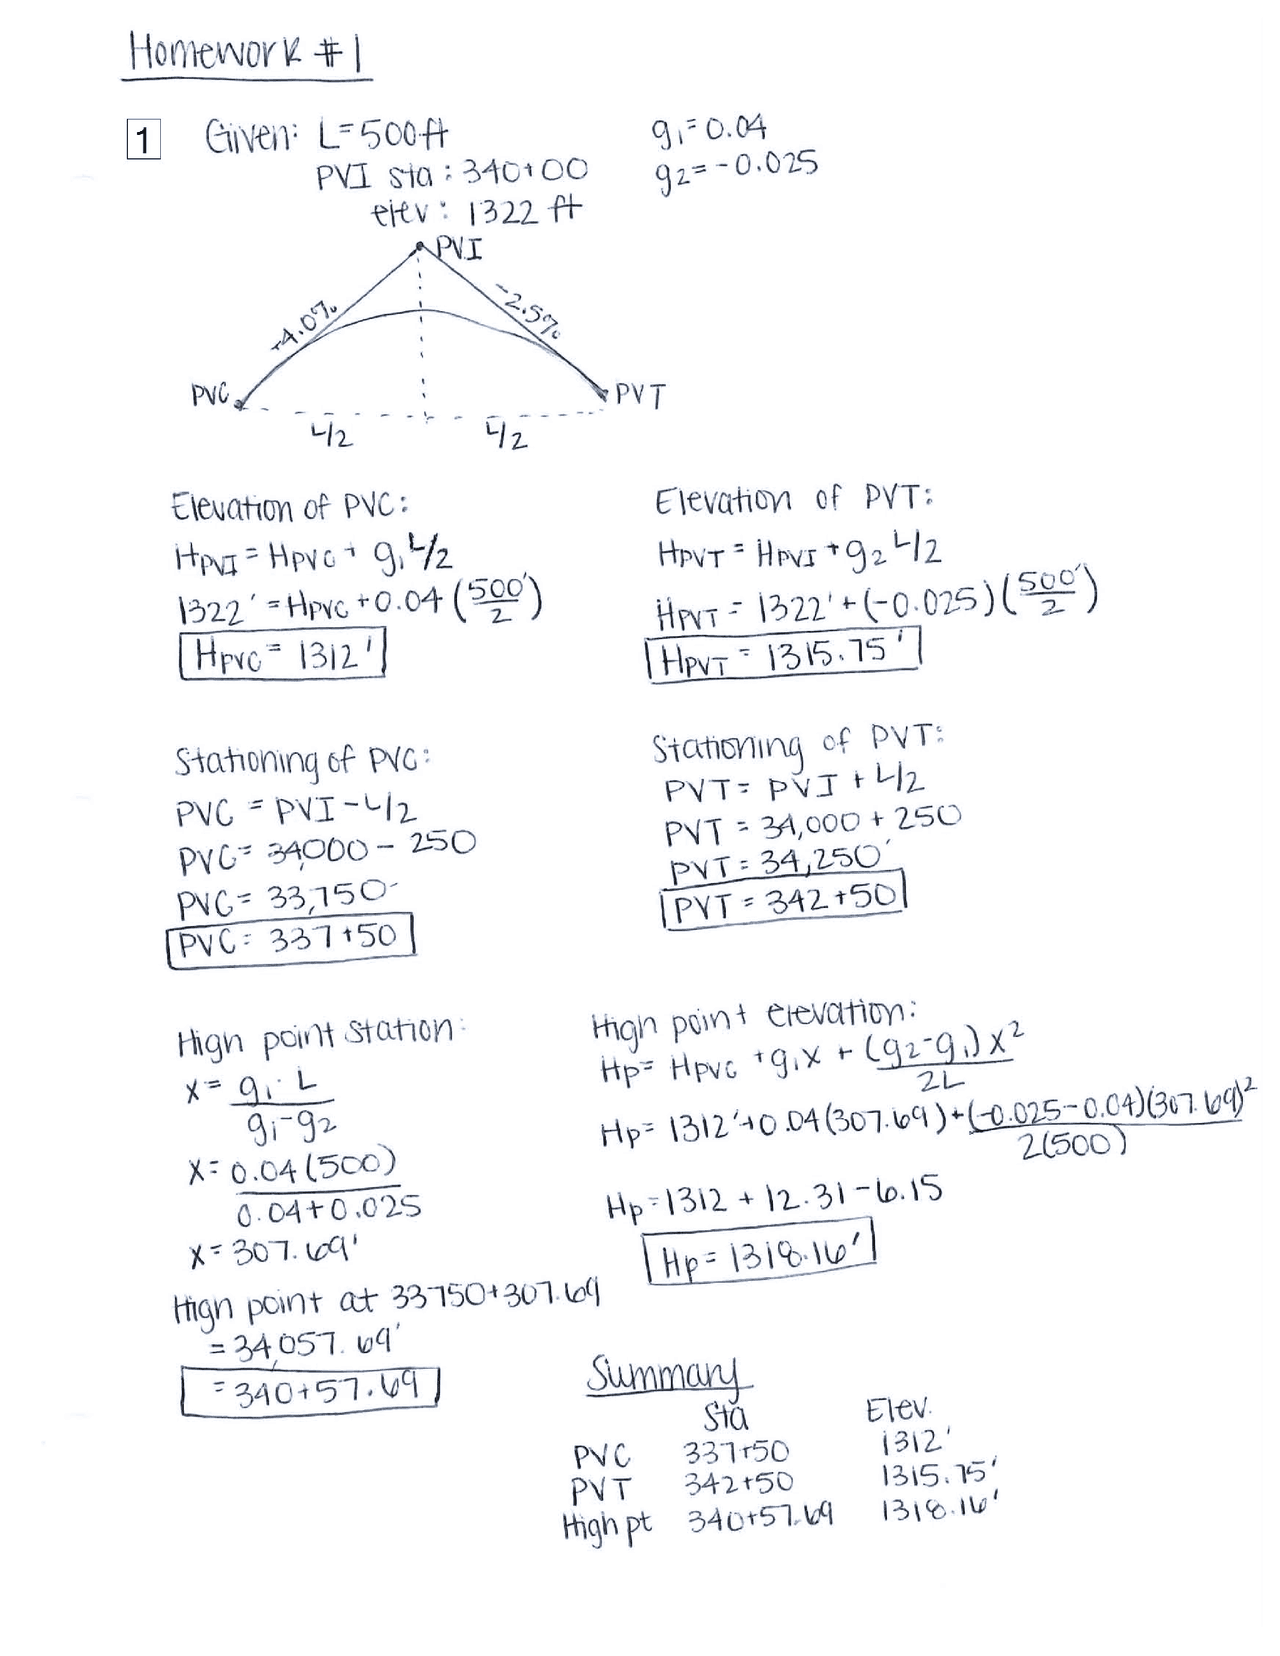 Homework #1
1 Given: L=500ft g₁=0.04
PVI sta: 340+00 g₂=-0.025
elev: 1322 ft
PVI
+4.0% -2.5%
PVC PVT
L/2 L/2
Elevation of PVC:
H_PVI = H_PVC + g₁ L/2
1322' = H_PVC + 0.04 (500'/2)
H_PVC = 1312'
Elevation of PVT:
H_PVT = H_PVI + g₂ L/2
H_PVT = 1322' + (-0.025)(500'/2)
H_PVT = 1315.75'
Stationing of PVC:
PVC = PVI - L/2
PVC = 34,000 - 250
PVC = 33,750
PVC = 337+50
Stationing of PVT:
PVT = PVI + L/2
PVT = 34,000 + 250
PVT = 34,250'
PVT = 342+50
High point station:
x = g₁·L / g₁-g₂
x = 0.04(500) / 0.04+0.025
x = 307.69'
High point at 33750+307.69
= 34,057.69'
= 340+57.69
High point elevation:
Hp = H_PVC + g₁x + (g₂-g₁)x² / 2L
Hp = 1312' + 0.04(307.69) + (-0.025-0.04)(307.69)² / 2(500)
Hp = 1312 + 12.31 - 6.15
Hp = 1318.16'
Summary
Sta Elev.
PVC 337+50 1312'
PVT 342+50 1315.75'
High pt 340+57.69 1318.16'